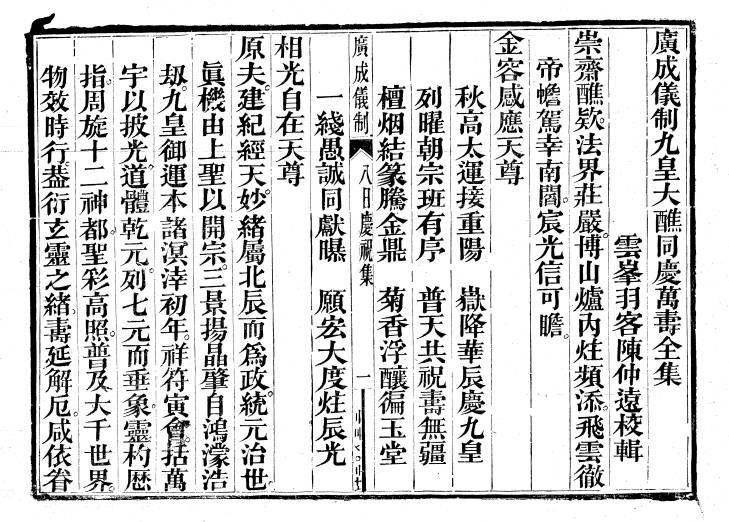 廣成儀制九皇大醮同慶萬壽全集
雲峯羽客陳仲遠校輯
崇齋醮欵。法界莊嚴。博山爐內炷頻添。飛雲徹
帝幨駕幸南閣。宸光信可瞻。
金容感應天尊
秋高太運接重陽　嶽降華辰慶九皇
列曜朝宗班有序　普天共祝壽無疆
檀烟結篆騰金鼎　菊香浮釀徧玉堂
廣成儀制　八日慶祝集　一
一綫愚誠同獻曝　願宏大度炷辰光
相光自在天尊
原夫。建紀經天。妙緒屬北辰而爲政。統元治世。
眞機由上聖以開宗。三景揚晶。肇自鴻濛浩
刼。九皇御運。本諸溟涬初年。祥符寅會。括萬
宇以披光。道體乾元。列七元而垂象。靈杓歴
指。周旋十二神都。聖彩高照。普及大千世界。
物效時行。葢衍玄靈之緒。壽延解厄。咸依眷